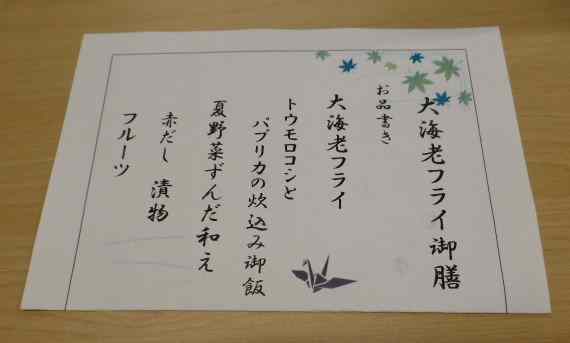 大海老フライ御膳
お品書き
大海老フライ
トウモロコシと
パプリカの炊込み御飯
夏野菜ずんだ和え
赤だし　漬物
フルーツ